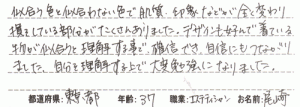 似合う色と似合わない色で肌質、印象などが全く変わり
損をしている部分がたくさんありました。デザインも好んで着ている
物が似合うと理解する事で、確信でき、自信にもつながり
ました。自分を理解する上で大変勉強になりました。
都道府県：京都 年齢：37 職業：エステティシャン お名前：尾崎